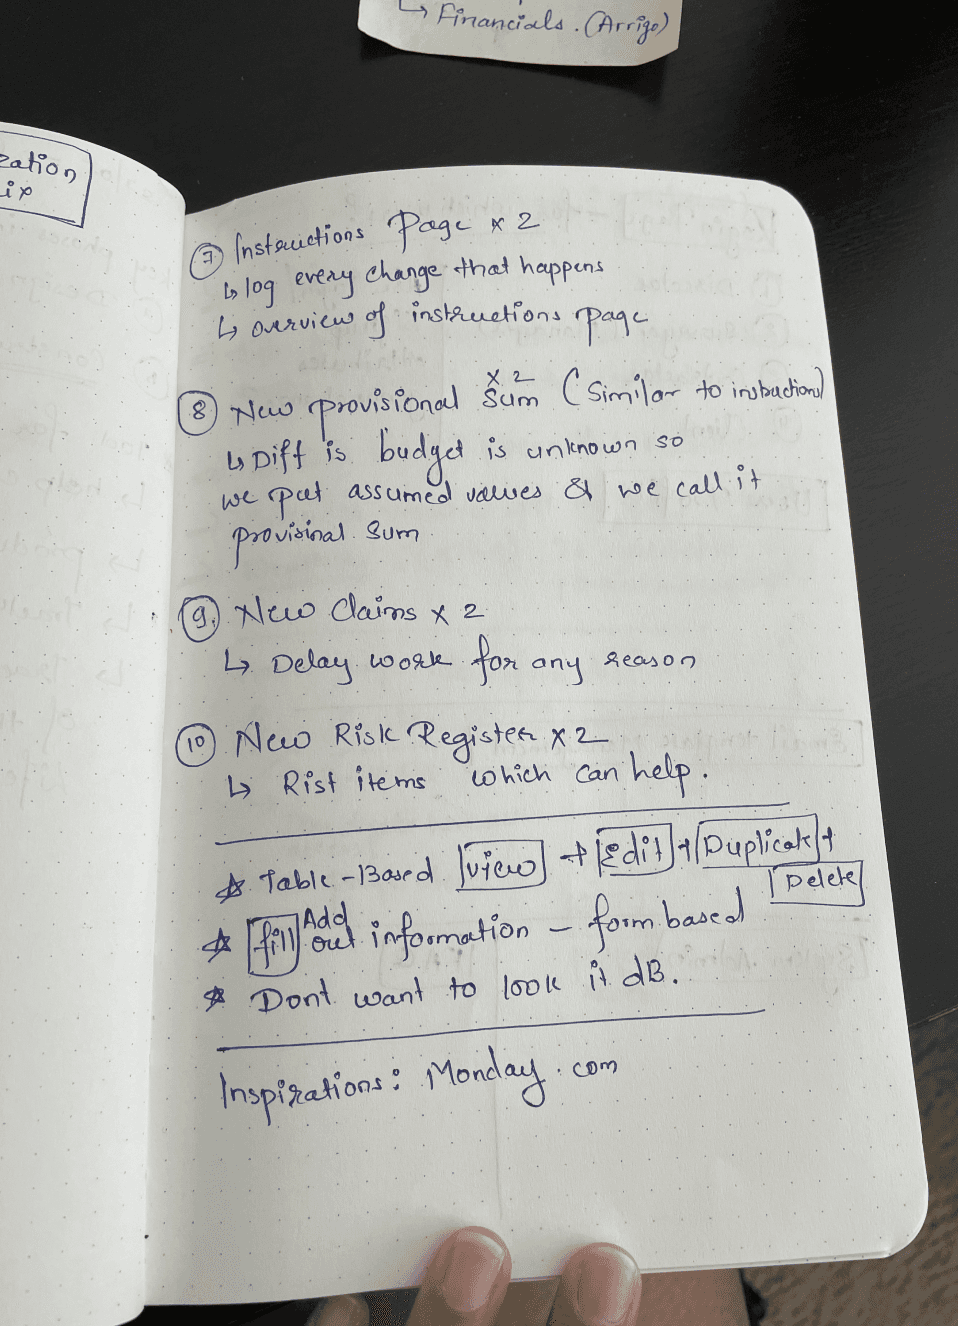 ↳ Financials. (Arrigo)
zation
ix
⑦ Instructions Page x 2
↳ log every change that happens
↳ overview of instructions page
⑧ New provisional Sum x 2 (Similar to instructions)
↳ Diff is budget is unknown so
we put assumed values & we call it
provisinal Sum
⑨. New Claims x 2
↳ Delay work for any reason
⑩ New Risk Register x 2
↳ Rist items which can help.
☆ Table-Based View → Edit + Duplicate +
Delete
☆ fill Add out information – form based
☆ Dont want to look it dB.
Inspirations: Monday.com